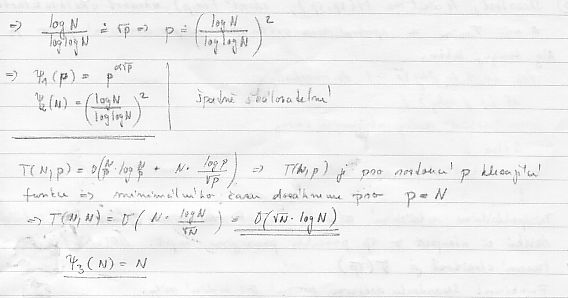 ⇒ log N / log log N ≐ √p ⇒ p ≐ (log N / log log N)²
⇒ Ψ₁(p) = p^(α√p)
Ψ₂(N) = (log N / log log N)² špatně škálovatelné!
T(N,p) = O(N/p · log N/p + N · log p / √p) ⇒ T(N,p) je pro rostoucí p klesající
funkce ⇒ minimálního času dosáhneme pro p = N
⇒ T(N,N) = O(N · log N / √N) = O(√N · log N)
Ψ₃(N) = N